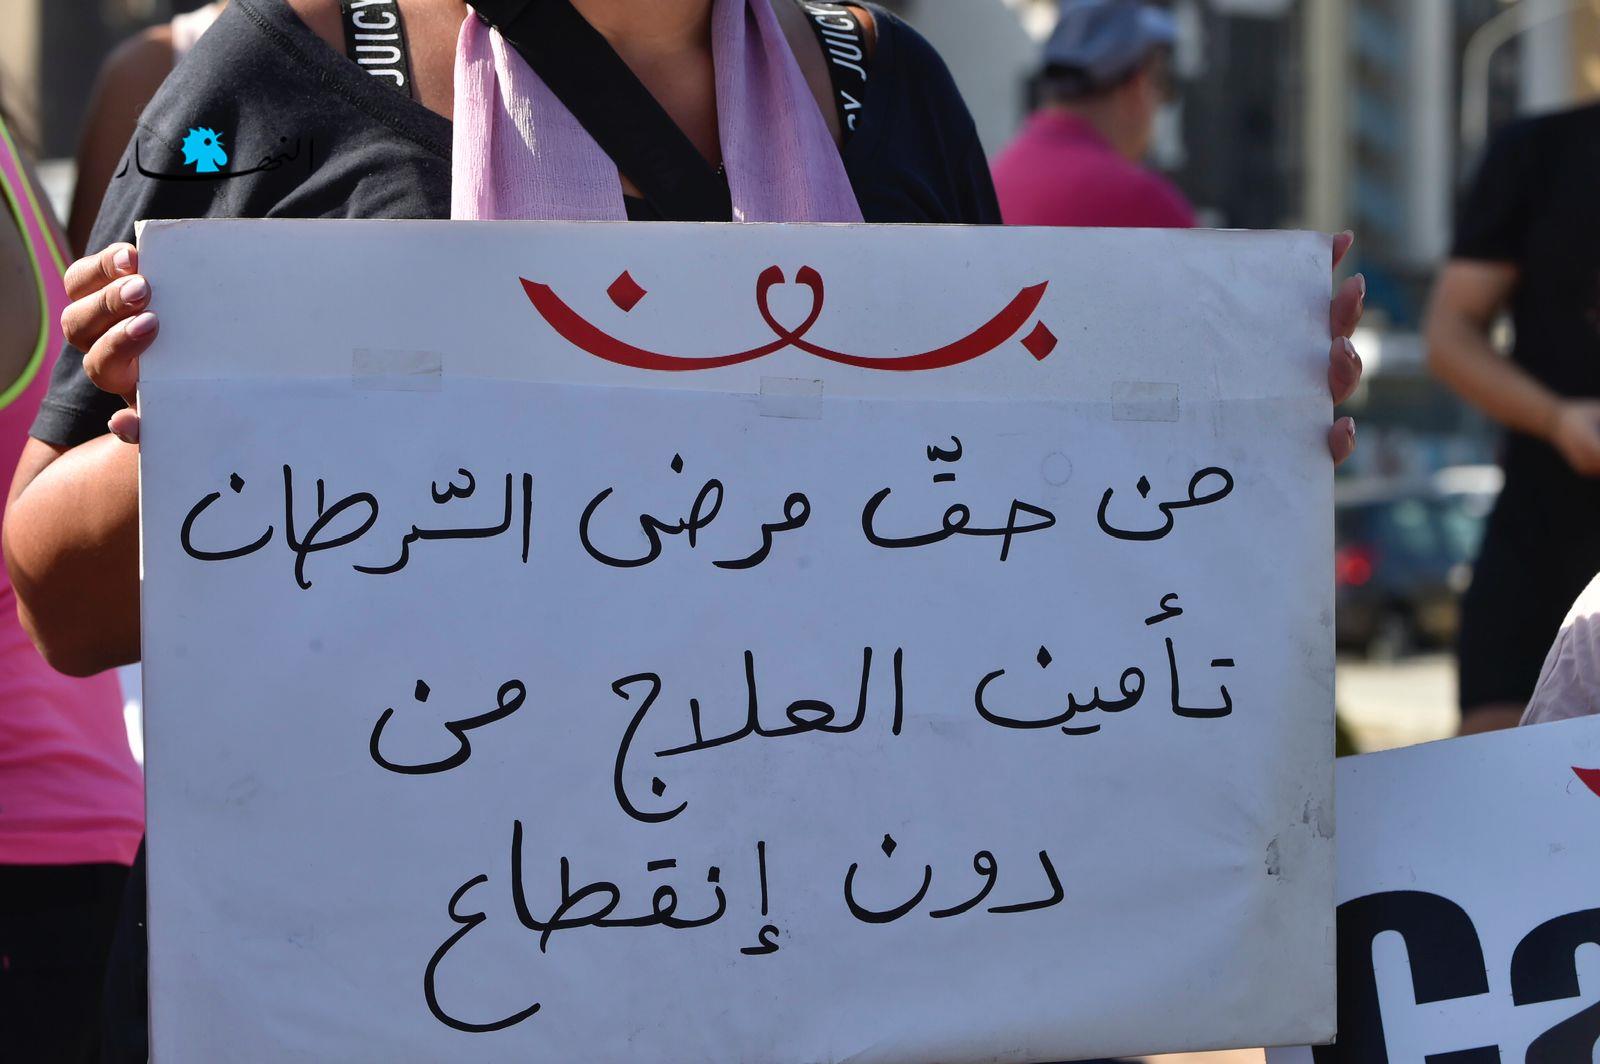 النهار
JUICY
JUICY
من حقّ مرضى السّرطان
تأمين العلاج من
دون إنقطاع
Ca